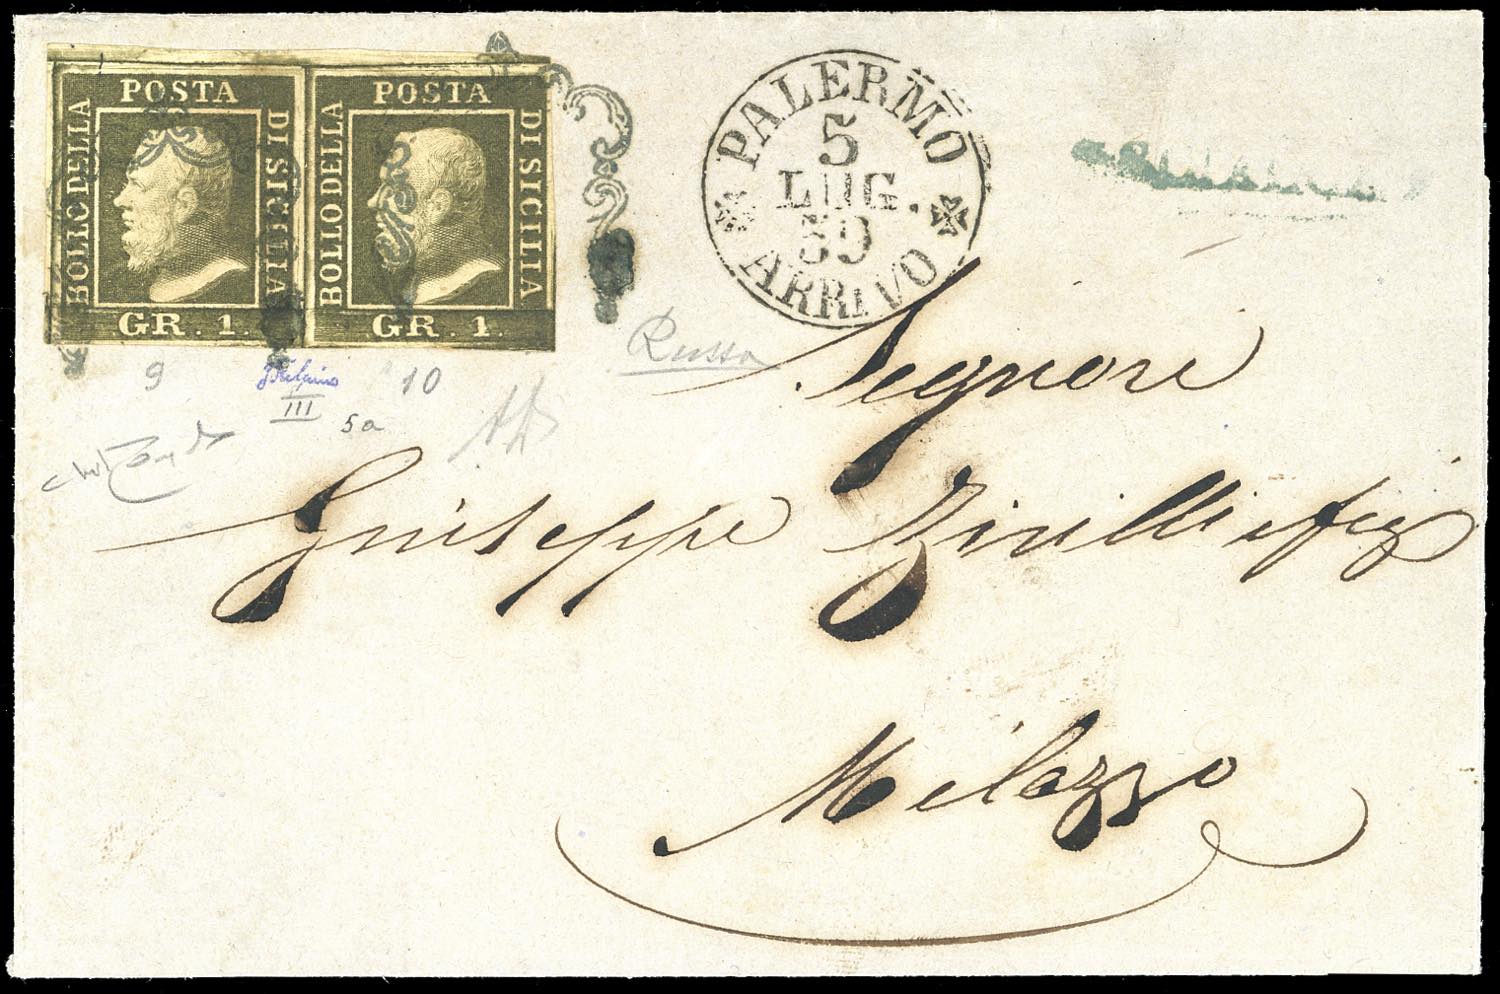 POSTA
BOLLO DELLA
DI SICILIA
GR. 1.
POSTA
BOLLO DELLA
DI SICILIA
GR. 1.
PALERMO
5
LUG.
59
ARRIVO
9
III
5a
10
Russo
Signori
Giuseppe Zirilli e figi
Milazzo